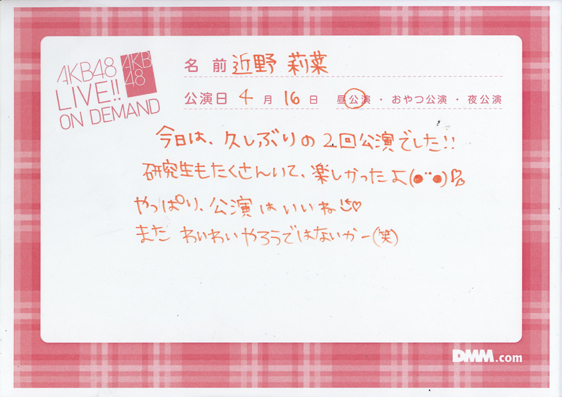 AKB48
LIVE!!
ON DEMAND
AKB
48
名 前 近野 莉菜
公演日 4 月 16 日 昼公演・おやつ公演・夜公演
今日は、久しぶりの2回公演でした!!
研究生もたくさんいて、楽しかったよ(●¨●)♡
やっぱり、公演はいいね♡
また わいわいやろうではないかー(笑)
DMM.com